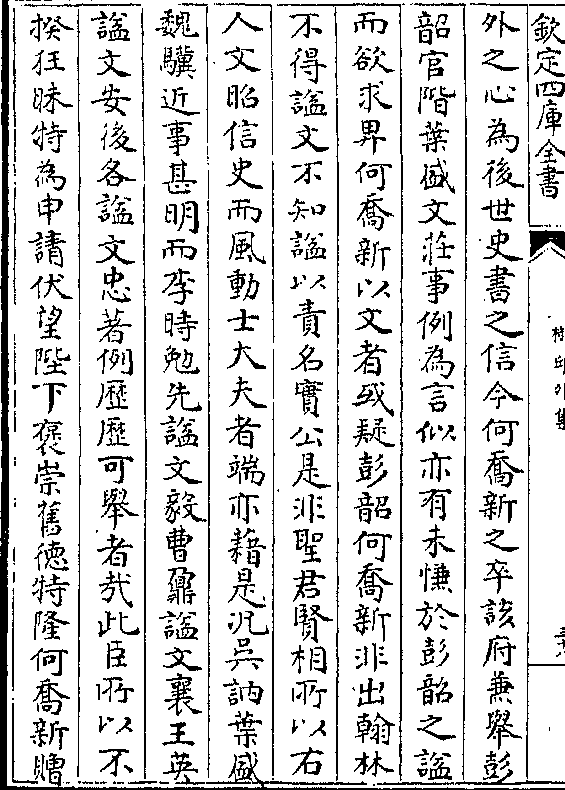 欽定四庫全書
外之心為後世史書之信今何喬新之卒該府兼舉彭
韶官階葉盛文莊事例為言似亦有未慊於彭韶之諡
而欲求畀何喬新以文者或疑彭韶何喬新非出翰林
不得諡文不知諡以責名實公是非聖君賢相所以右
人文昭信史而風動士大夫者端亦藉是况吳訥葉盛
魏驥近事甚明而李時勉先諡文毅曹鼐諡文襄王英
諡文安後各諡文忠著例歷歷可舉者哉此臣所以不
揆狂昧特為申請伏望陛下褒崇舊德特隆何喬新贈